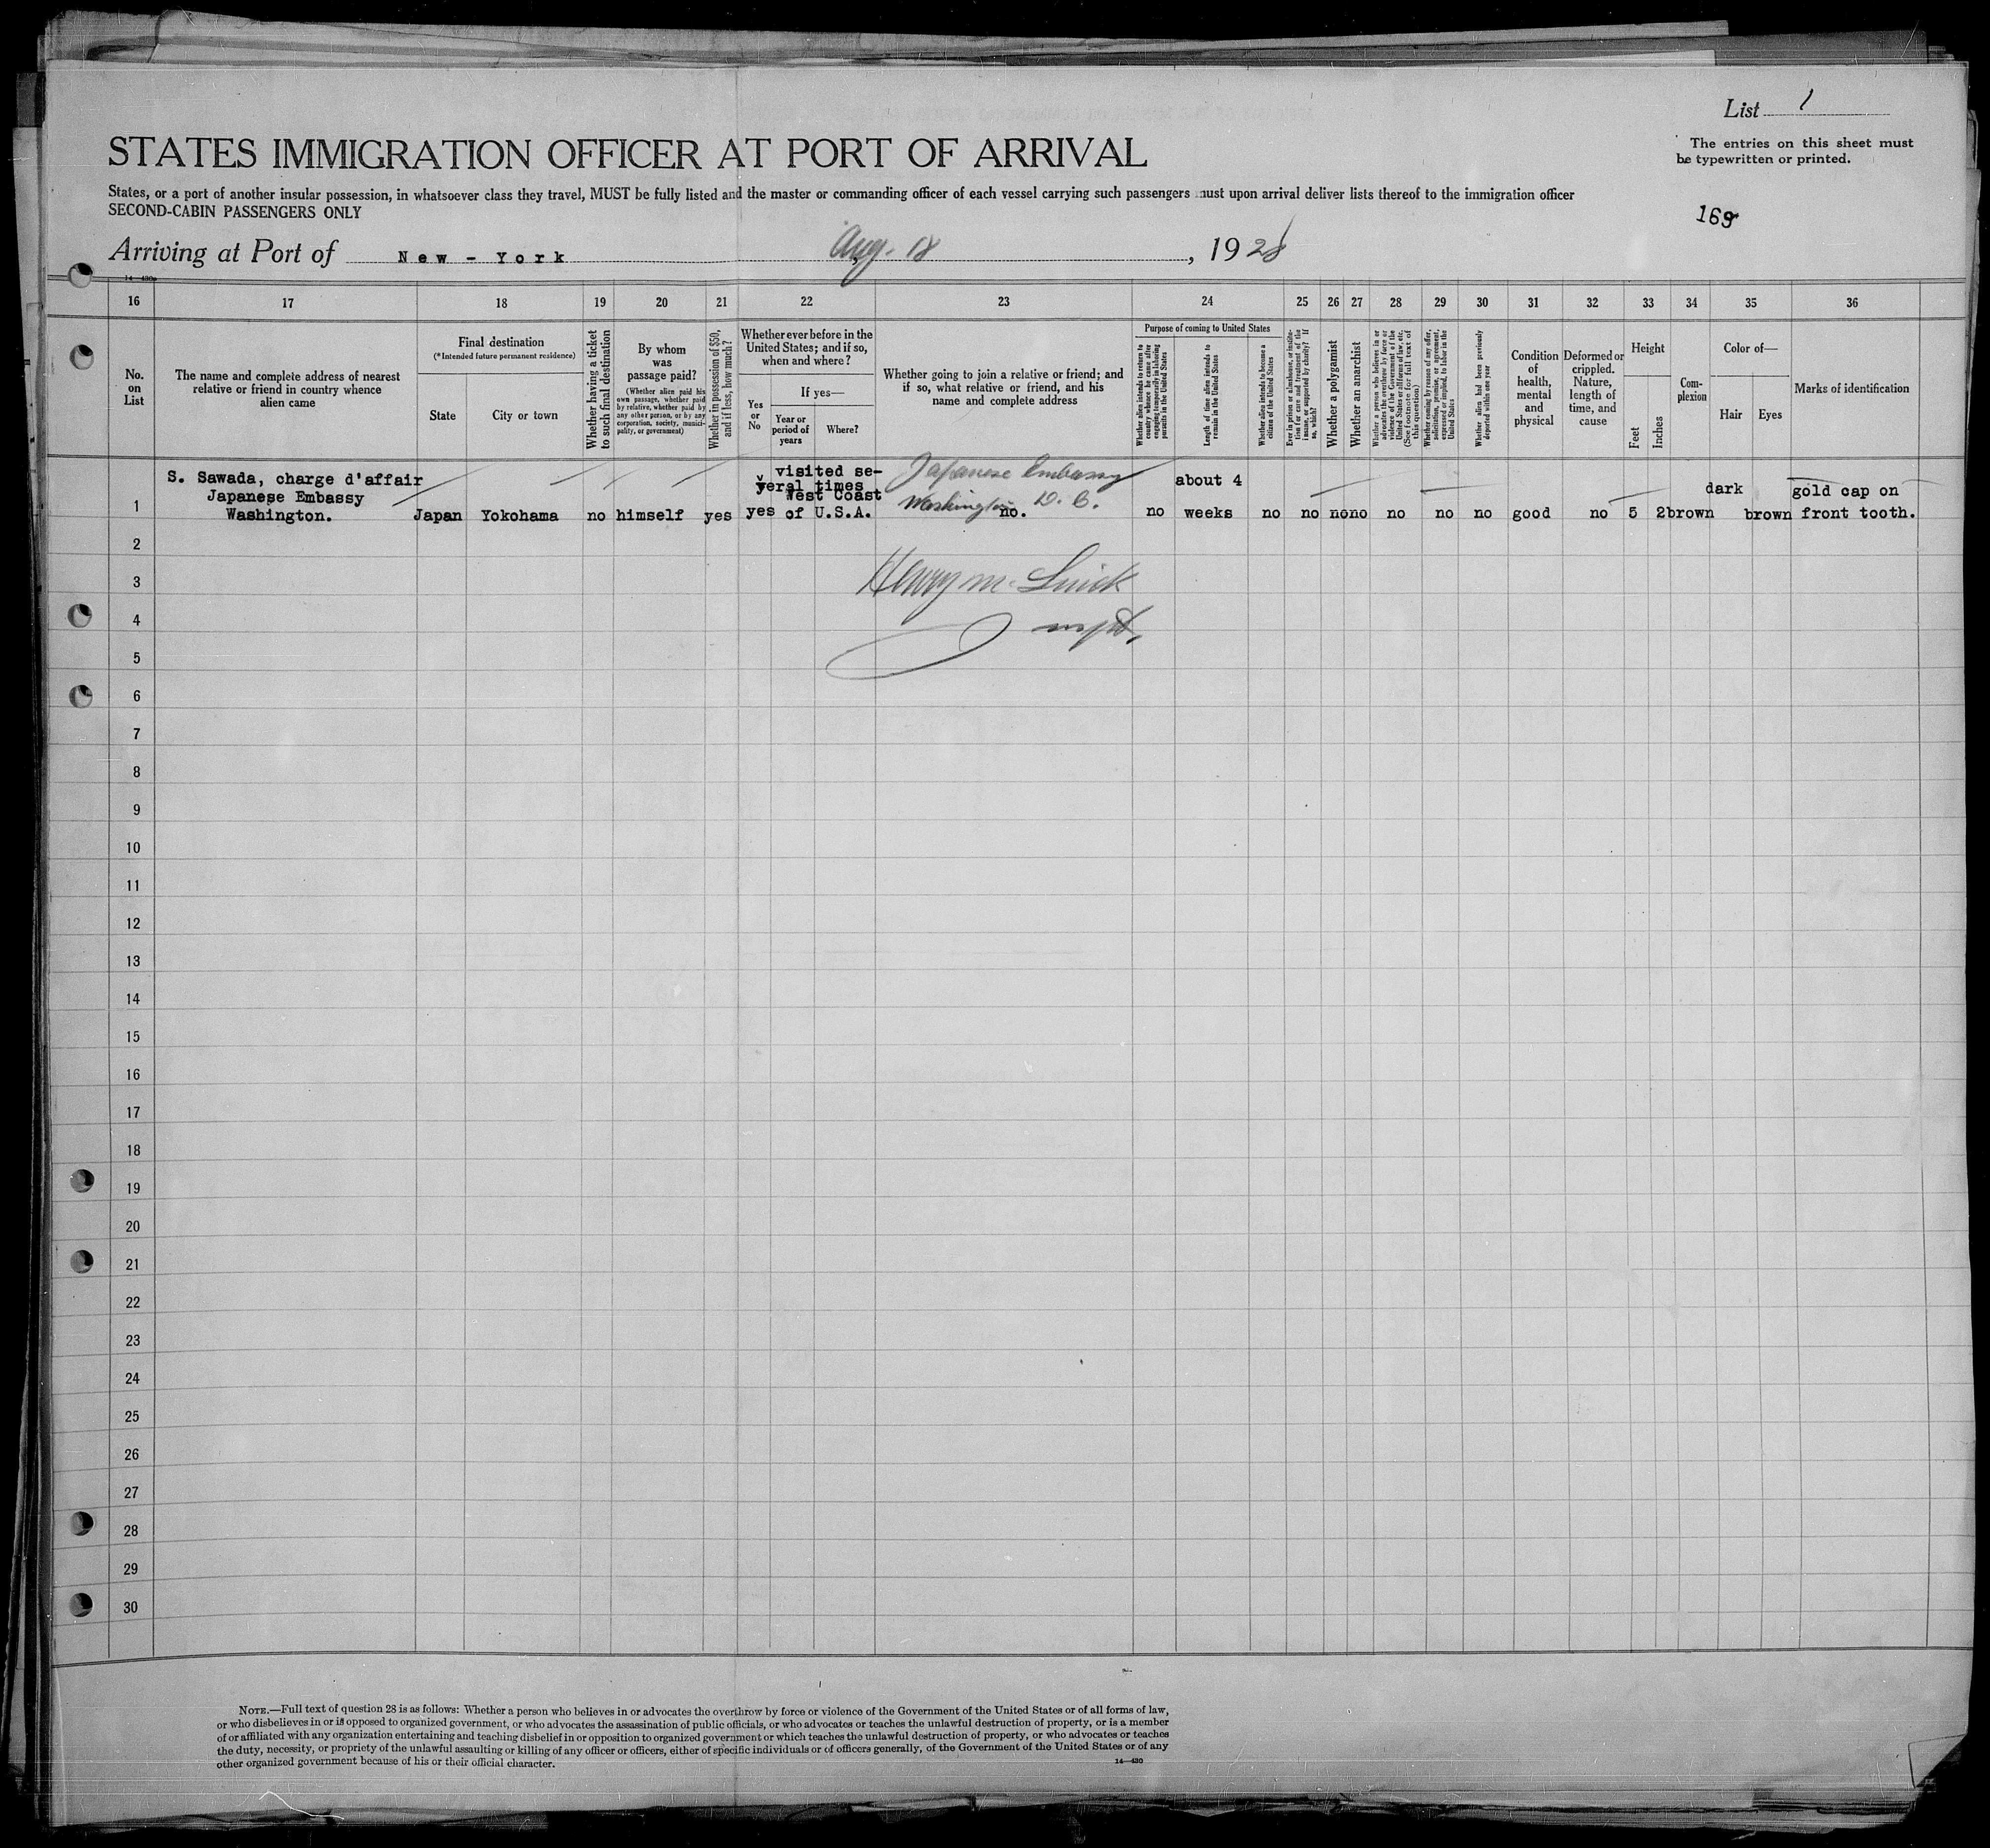 List 1
STATES IMMIGRATION OFFICER AT PORT OF ARRIVAL
The entries on this sheet must
be typewritten or printed.
States, or a port of another insular possession, in whatsoever class they travel, MUST be fully listed and the master or commanding officer of each vessel carrying such passengers must upon arrival deliver lists thereof to the immigration officer
SECOND-CABIN PASSENGERS ONLY
169
Arriving at Port of New-York Aug. 18, 1928
14—430
16 17 18 19 20 21 22 23 24 25 26 27 28 29 30 31 32 33 34 35 36
No.
on
List
The name and complete address of nearest
relative or friend in country whence
alien came
Final destination
(*Intended future permanent residence)
State
City or town
Whether having a ticket
to such final destination
By whom
was
passage paid?
(Whether alien paid his
own passage, whether paid
by relative, whether paid by
any other person, or by any
corporation, society, munici-
pality, or government)
Whether in possession of $50,
and if less, how much?
Whether ever before in the
United States; and if so,
when and where?
Yes
or
No
If yes—
Year or
period of
years
Where?
Whether going to join a relative or friend; and
if so, what relative or friend, and his
name and complete address
Purpose of coming to United States
Whether alien intends to return to
country whence he came after
engaging temporarily in laboring
pursuits in the United States
Length of time alien intends to
remain in the United States
Whether alien intends to become a
citizen of the United States
Ever in prison or almshouse, or institu-
tion for care and treatment of the
insane, or supported by charity? If
so, which?
Whether a polygamist
Whether an anarchist
Whether a person who believes in or
advocates the overthrow by force or
violence of the Government of the
United States or all forms of law, etc.
(See footnote for full text of
this question)
Whether coming by reason of any offer,
solicitation, promise, or agreement,
expressed or implied, to labor in the
United States
Whether alien had been previously
deported within one year
Condition
of
health,
mental
and
physical
Deformed or
crippled.
Nature,
length of
time, and
cause
Height
Feet
Inches
Com-
plexion
Color of—
Hair
Eyes
Marks of identification
S. Sawada, charge d'affair
Japanese Embassy
Washington.
1
Japan Yokohama no himself yes
visited se-
veral times
West Coast
yes of U.S.A.
Japanese Embassy
Washington D. C.
no.
no
about 4
weeks
no no no no no no no good no 5 2
dark
brown brown
gold cap on
front tooth.
2
3
Henry M.
4
5
6
7
8
9
10
11
12
13
14
15
16
17
18
19
20
21
22
23
24
25
26
27
28
29
30
NOTE.—Full text of question 28 is as follows: Whether a person who believes in or advocates the overthrow by force or violence of the Government of the United States or of all forms of law,
or who disbelieves in or is opposed to organized government, or who advocates the assassination of public officials, or who advocates or teaches the unlawful destruction of property, or is a member
of or affiliated with any organization entertaining and teaching disbelief in or opposition to organized government or which teaches the unlawful destruction of property, or who advocates or teaches
the duty, necessity, or propriety of the unlawful assaulting or killing of any officer or officers, either of specific individuals or of officers generally, of the Government of the United States or of any
other organized government because of his or their official character.
14—430